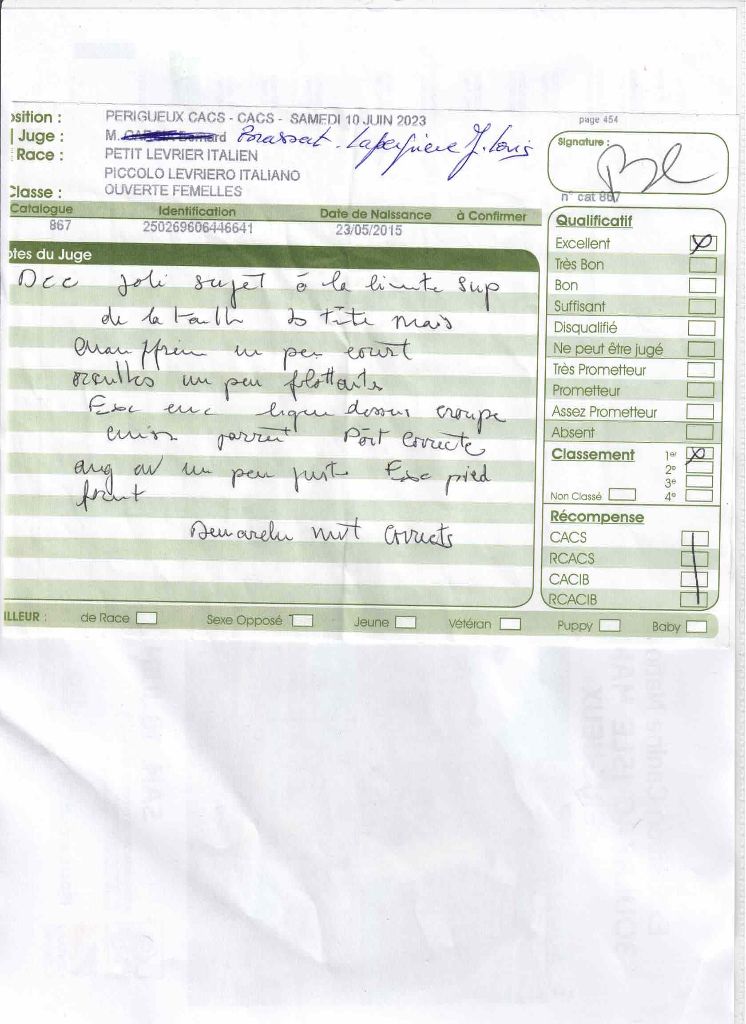 osition : PERIGUEUX CACS - CACS - SAMEDI 10 JUIN 2023
page 454
Juge : M. Bernard Brassat-Laperrière J. Louis
Signature :
Race : PETIT LEVRIER ITALIEN
PICCOLO LEVRIERO ITALIANO
Classe : OUVERTE FEMELLES
n° cat 867
Catalogue Identification Date de Naissance à Confirmer
867 250269606446641 23/05/2015
otes du Juge
Joli sujet à la limite sup
de la taille tête mais
chanffrein un peu court
oreilles un peu flottantes
Exc enc ligne dessus croupe
cuiss jarret Port correcte
ang av un peu juste Exc pied
front
Demarche mvt corrects
Qualificatif
Excellent X
Très Bon
Bon
Suffisant
Disqualifié
Ne peut être jugé
Très Prometteur
Prometteur
Assez Prometteur
Absent
Classement 1er X
2e
3e
Non Classé 4e
Récompense
CACS
RCACS
CACIB
RCACIB
ILLEUR : de Race Sexe Opposé Jeune Vétéran Puppy Baby